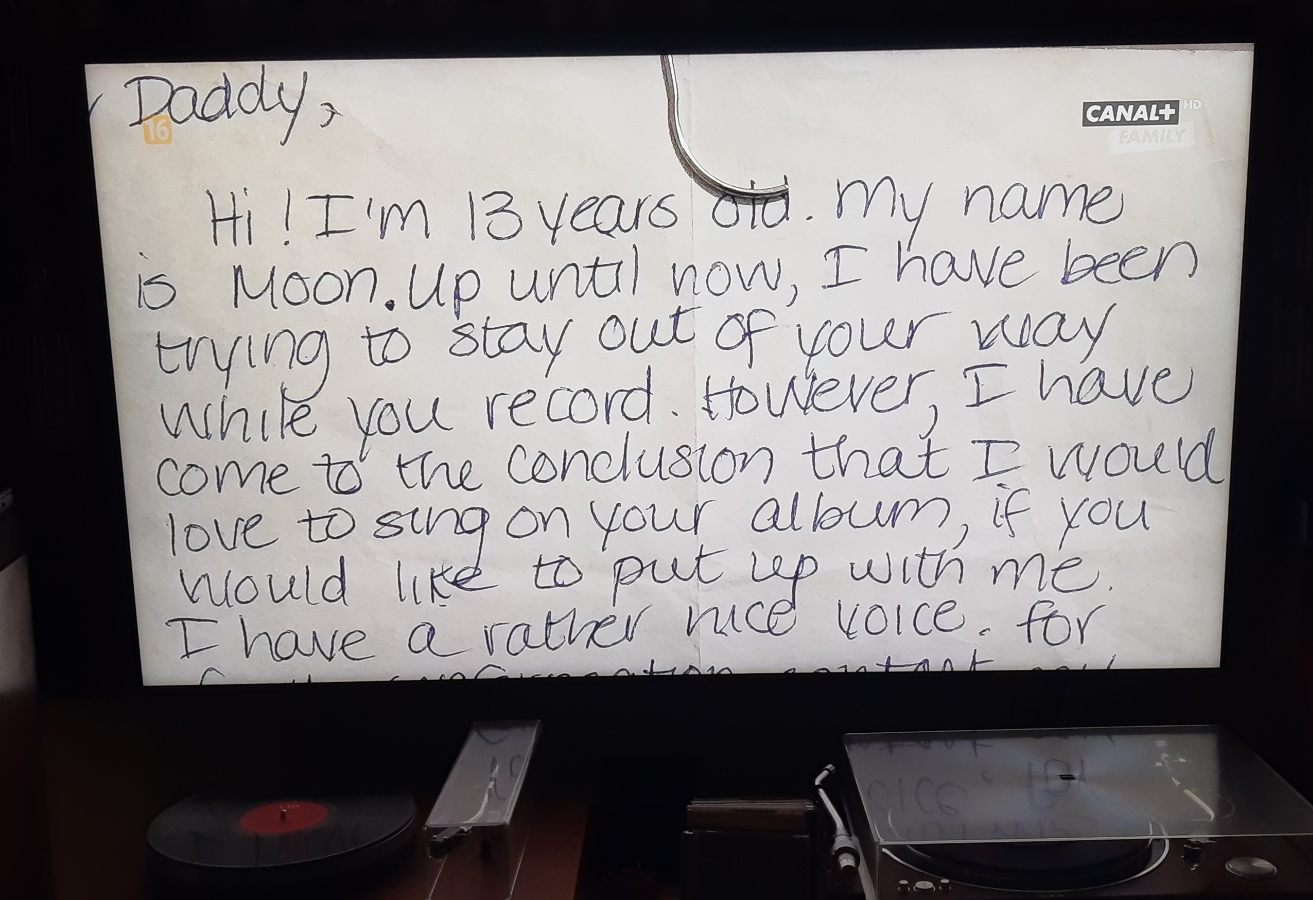 Daddy,
16
CANAL+ HD
FAMILY
Hi! I'm 13 years old. My name
is Moon. Up until now, I have been
trying to stay out of your way
while you record. However, I have
come to the conclusion that I would
love to sing on your album, if you
would like to put up with me.
I have a rather nice voice. for
information contact my